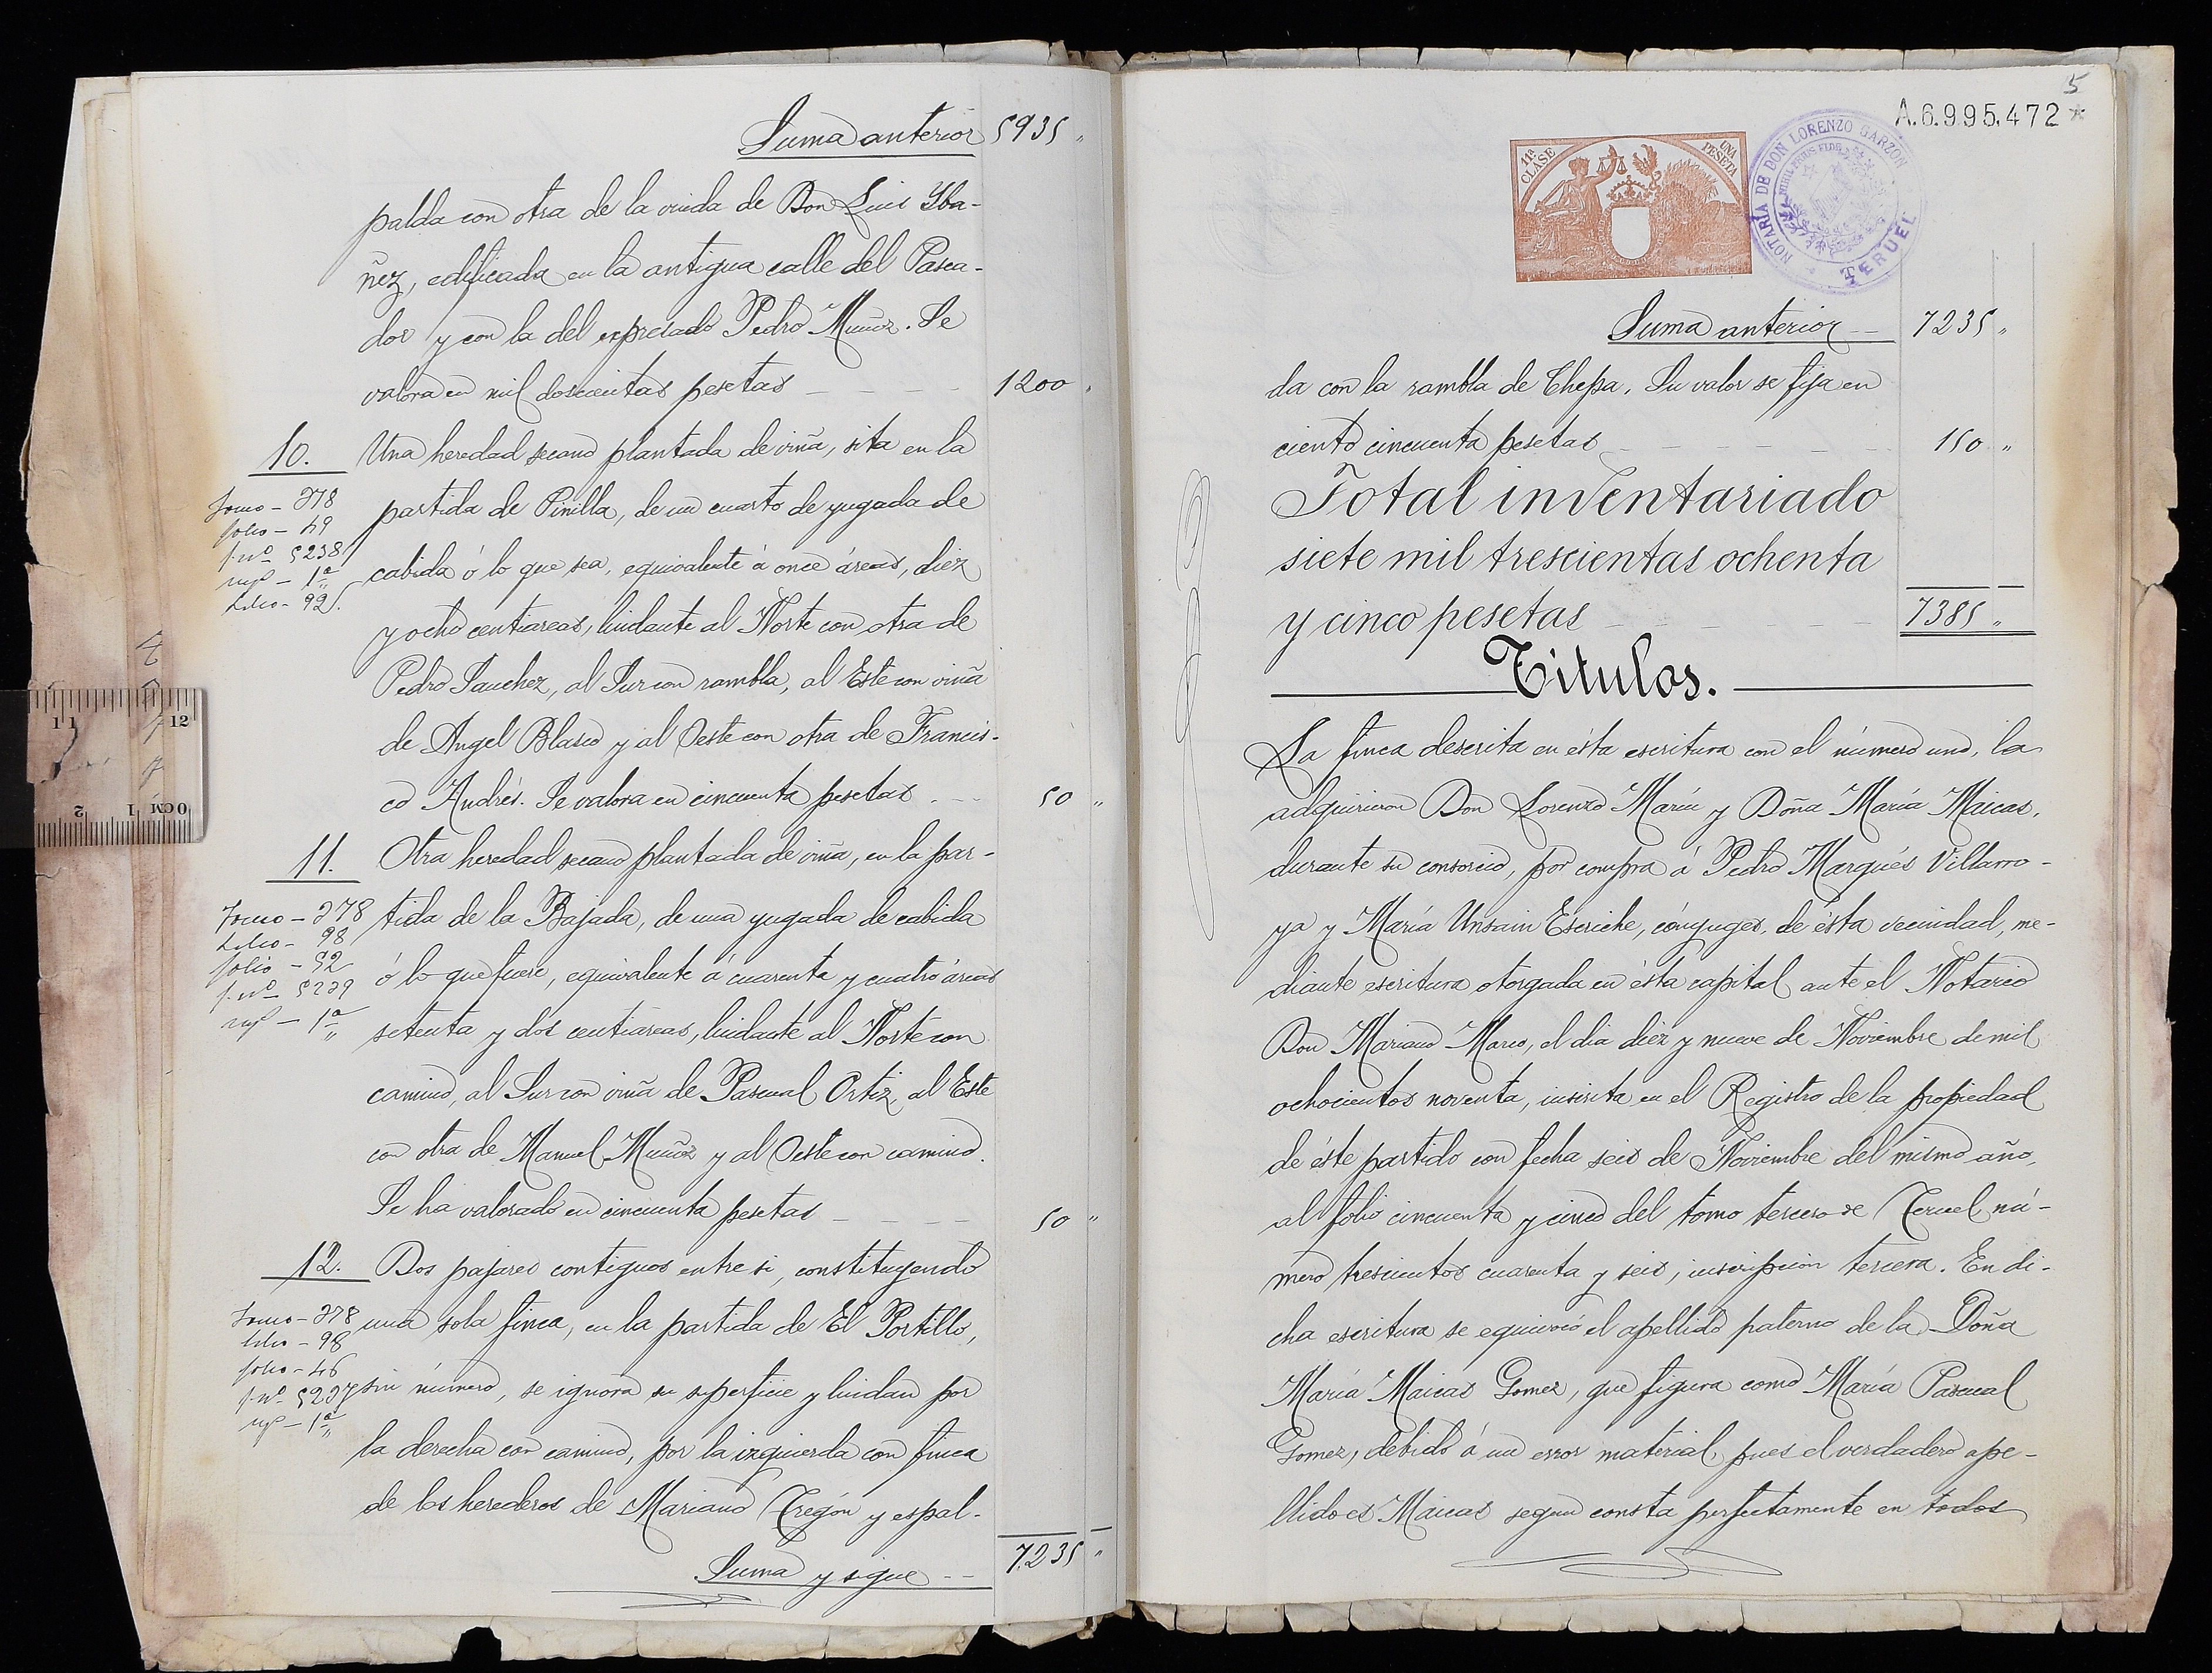 Suma anterior 5935 "
palda con otra de la viuda de Don Luis Yba-
ñez, edificada en la antigua calle del Pasea-
dor y con la del expresado Pedro Muñoz. Se
valora en mil doscientas pesetas 1200 "
10. Una heredad secano plantada de viña, sita en la
partida de Pinilla, de un cuarto de yugada de
cabida ó lo que sea, equivalente á once áreas, diez
y ocho centiareas, lindante al Norte con otra de
Pedro Sanchez, al Sur con rambla, al Este con viña
de Angel Blasco y al Oeste con otra de Francis-
co Andrés. Se valora en cincuenta pesetas 50 "
Tomo - 278
folio - 49
f. nº 5238
insp - 1ª
Libro - 98
11. Otra heredad secano plantada de viña, en la par-
tida de la Bajada, de una yugada de cabida
ó lo que fuere, equivalente á cuarenta y cuatro áreas
setenta y dos centiáreas, lindante al Norte con
camino, al Sur con viña de Pascual Ortiz, al Este
con otra de Manuel Muñoz y al Oeste con camino.
Se ha valorado en cincuenta pesetas 50 "
Tomo - 278
Libro - 98
folio - 52
f. nº 5239
insp - 1ª
12. Dos pajares contiguos entre si, constituyendo
una sola finca, en la partida de El Portillo,
sin número, se ignora su superficie y lindan por
la derecha con camino, por la izquierda con finca
de los herederos de Mariano Tregón y espal-
Tomo - 278
Libro - 98
folio - 46
f. nº 5237
insp - 1ª
Suma y sigue 7235 "
5
A.6.995.472 *
11ª CLASE
UNA PESETA
NOTARÍA DE DON LORENZO GARZON
NIHIL PRIUS FIDE
TERUEL
Suma anterior 7235 "
da con la rambla de Chepa. Su valor se fija en
ciento cincuenta pesetas 150 "
Total inventariado
siete mil trescientas ochenta
y cinco pesetas 7385 "
Titulos.
La finca descrita en ésta escritura con el número uno, la
adquirieron Don Lorenzo Marín y Doña María Maicas,
durante su consorcio, por compra á Pedro Marqués Villarro-
ya y María Unsain Escriche, cónyuges, de ésta vecindad, me-
diante escritura otorgada en ésta capital ante el Notario
Don Mariano Marco, el dia diez y nueve de Noviembre de mil
ochocientos noventa, inscrita en el Registro de la propiedad
de éste partido con fecha seis de Noviembre del mismo año,
al folio cincuenta y cinco del tomo tercero de Teruel nú-
mero trescientos cuarenta y seis, inscripcion tercera. En di-
cha escritura se equivocó el apellido paterno de la Doña
María Maicas Gomez, que figura como María Pascual
Gomez, debido á un error material, pues el verdadero ape-
llido es Maicas segun consta perfectamente en todos